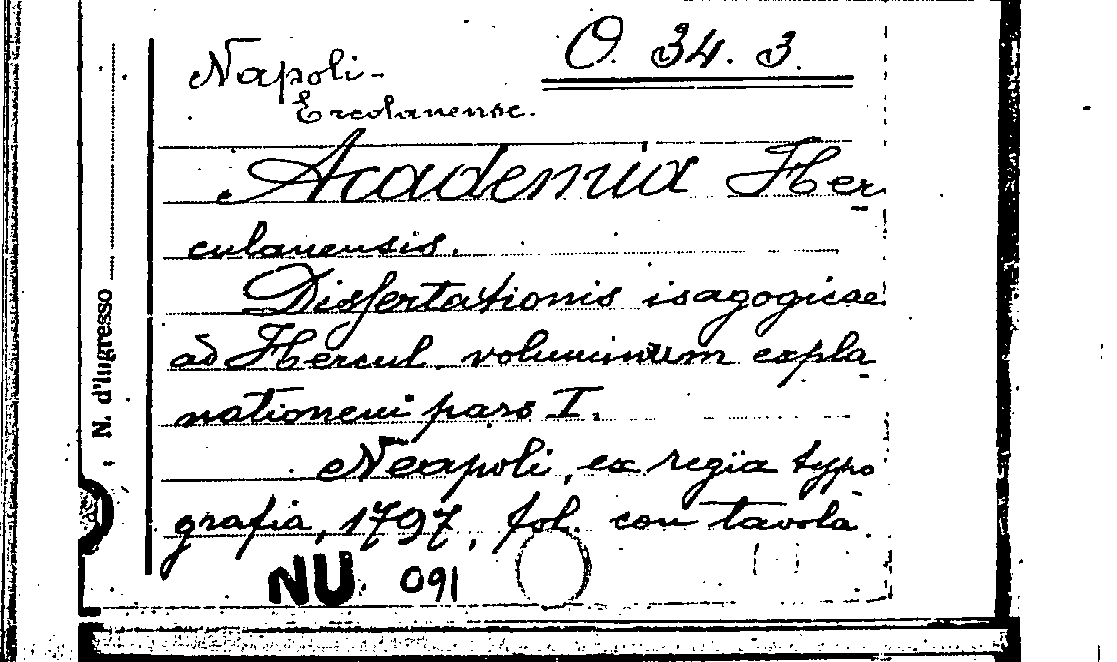 O. 34. 3.
Napoli-
Ercolanense.
Academia Her
culanensis.
Dissertationis isagogicae
ad Hercul. voluminum expla
nationem pars I.
Neapoli, ex regia typo
grafia, 1797, fol. con tavola.
NU 091
N. d'Ingresso